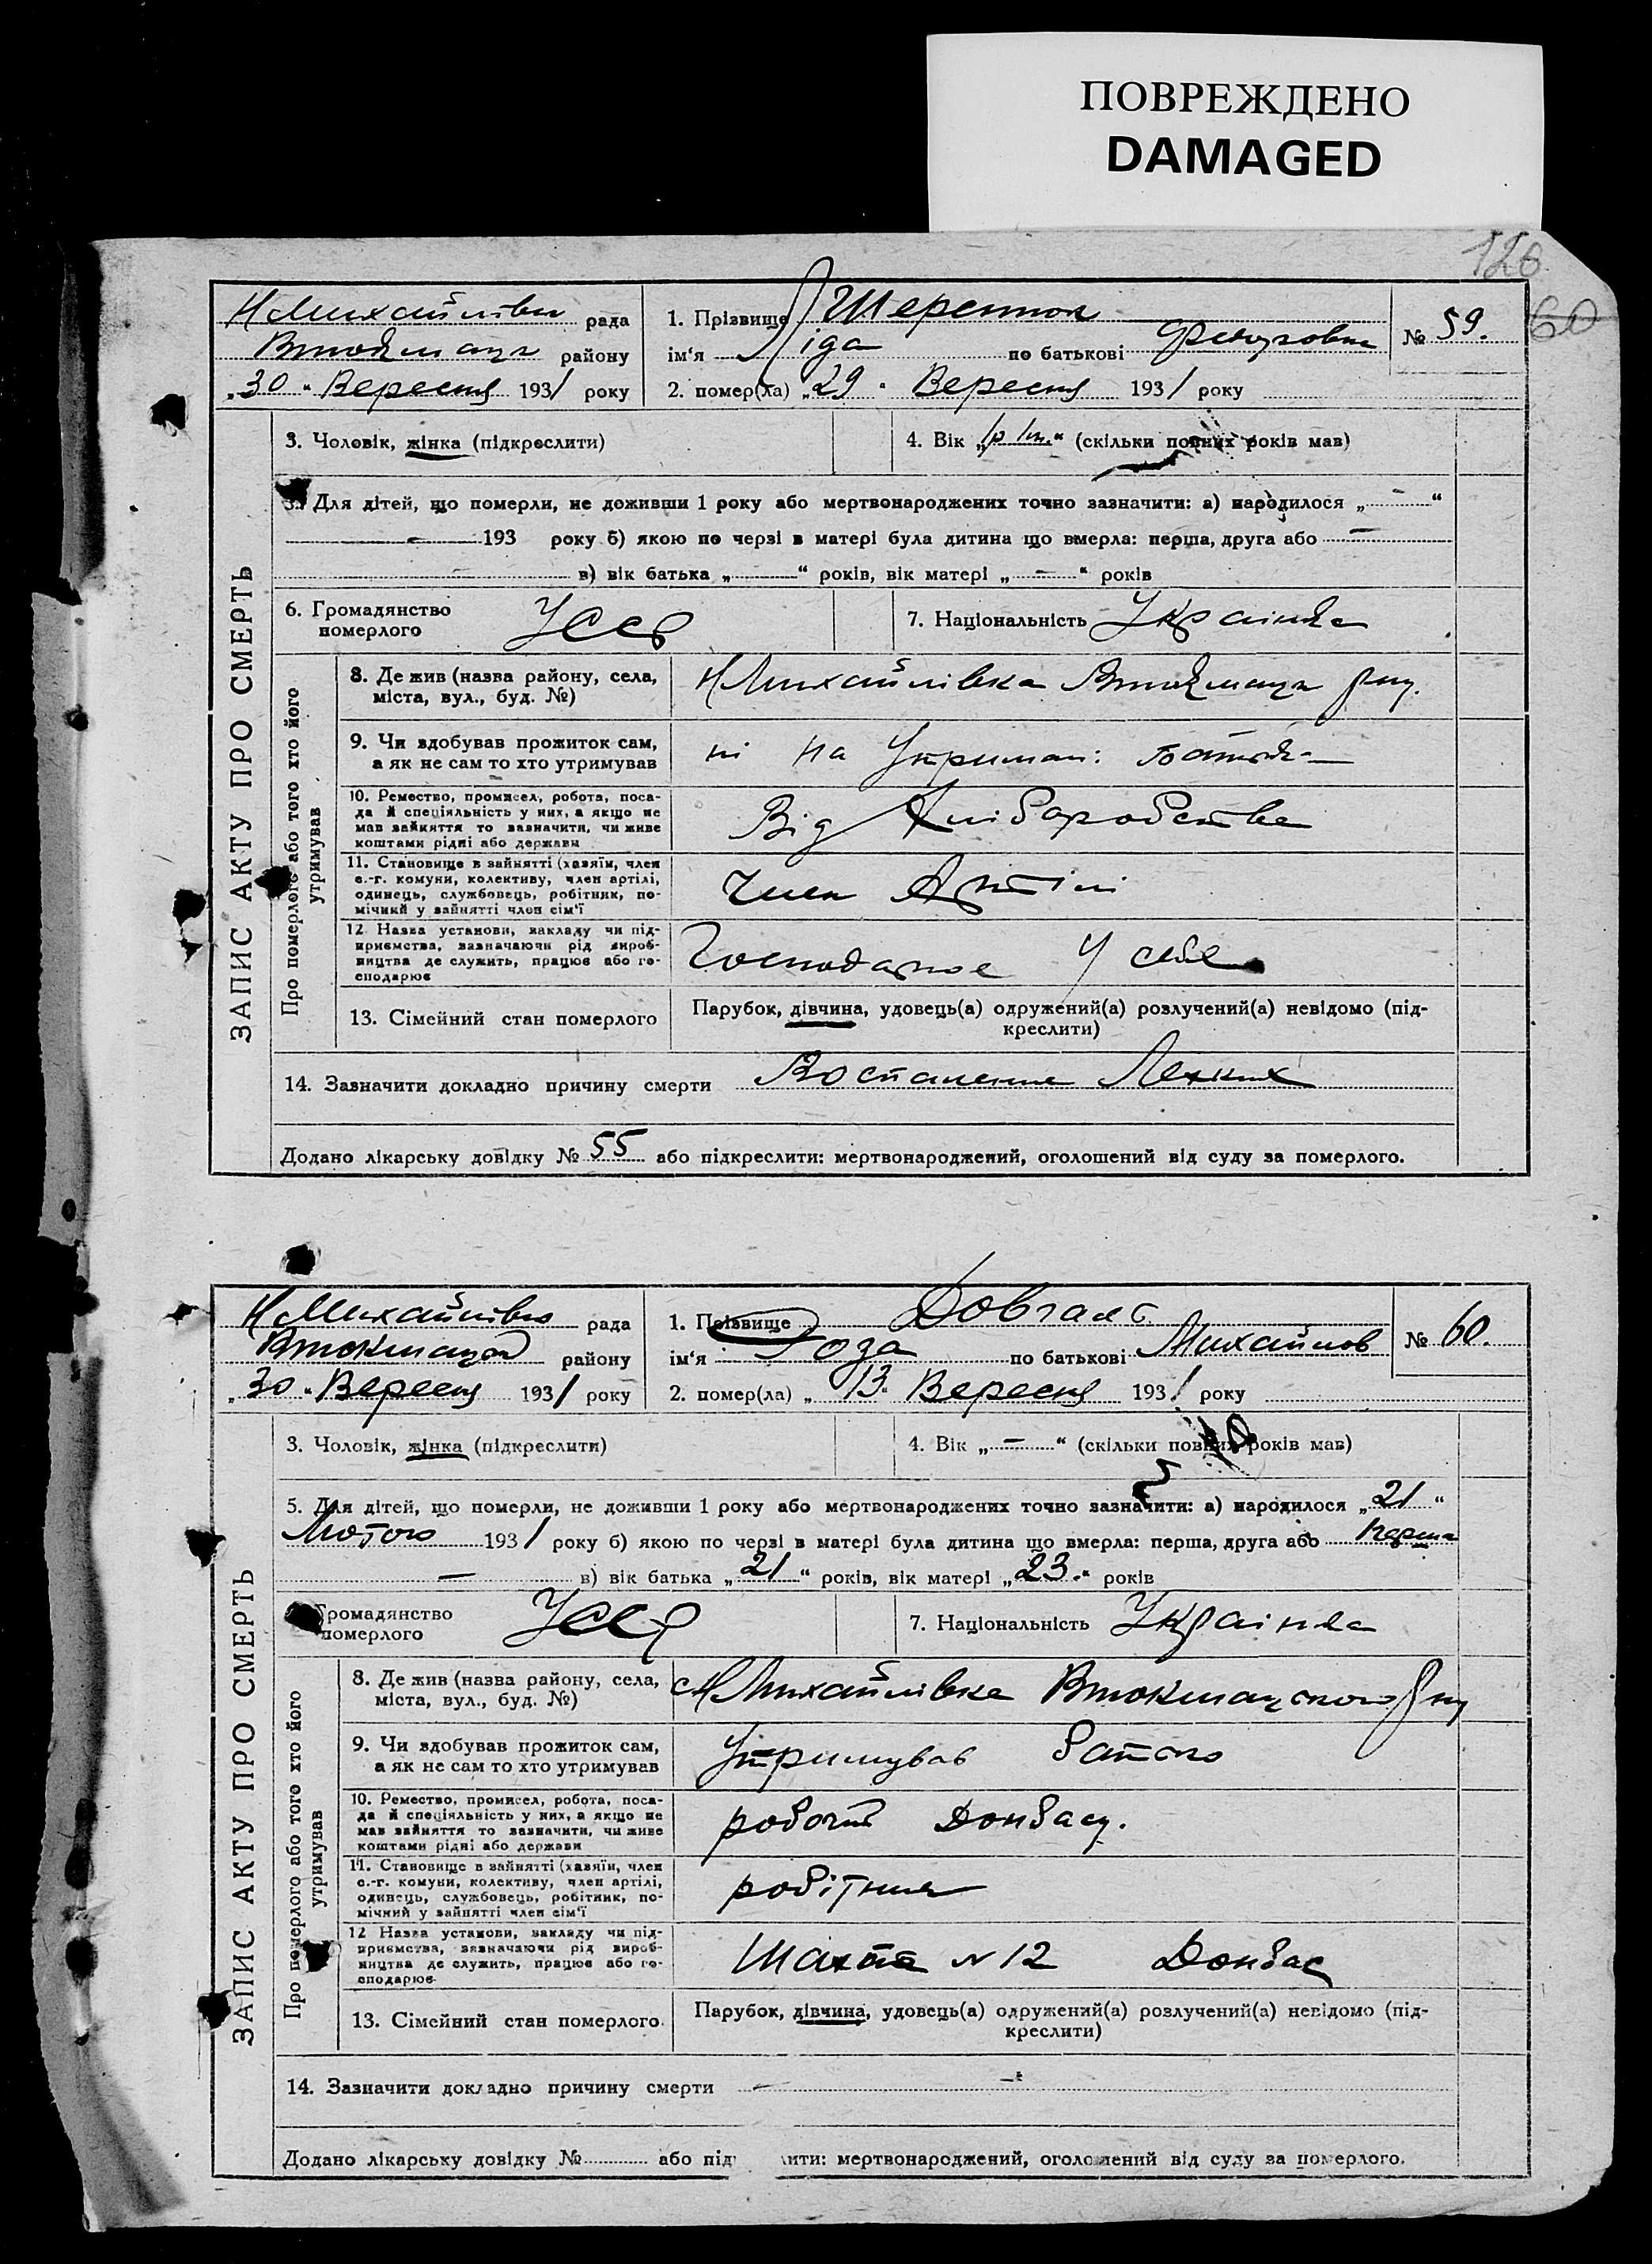 ПОВРЕЖДЕНО
DAMAGED
126
60
Н Михайлівки рада
Втокмацьк району
„30“ Вересня 1931 року
1. Прізвище
ім‘я Ліда по батькові
2. помер(ла) „29“ Вересня 1931 року
№ 59.
ЗАПИС АКТУ ПРО СМЕРТЬ
3. Чоловік, жінка (підкреслити)
4. Вік „1р 1м.“ (скільки повних років мав)
5. Для дітей, що померли, не доживши 1 року або мертвонароджених точно зазначити: а) народилося „ - “
- 193 року б) якою по черзі в матері була дитина що вмерла: перша, друга або -
в) вік батька „ “ років, вік матері „ - “ років
6. Громадянство
померлого
УССР
7. Національність Українка
Про померлого або того хто його
утримував
8. Де жив (назва району, села,
міста, вул., буд. №)
Н Михайлівка Втокмацьк р-ну.
9. Чи здобував прожиток сам,
а як не сам то хто утримував
ні на Утриман: батьк-
10. Ремество, промисел, робота, поса-
да й спеціяльність у них, а якщо не
мав зайняття то зазначити, чи живе
коштами рідні або держави
Від Хліборобства
11. Становище в зайнятті (хазяїн, член
с.-г. комуни, колективу, член артілі,
одинець, службовець, робітник, по-
мічний у зайнятті член сім‘ї
Член Артілі
12 Назва установи, закладу чи під-
приємства, зазначаючи рід вироб-
ництва де служить, працює або го-
сподарює
Господарює У себе
13. Сімейний стан померлого
Парубок, дівчина, удовець(а) одружений(а) розлучений(а) невідомо (під-
креслити)
14. Зазначити докладно причину смерти Воспаление Легких
Додано лікарську довідку № 55 або підкреслити: мертвонароджений, оголошений від суду за померлого.
Н Михайлівка рада
Втокмацьк району
„30“ Вересня 1931 року
1. Прізвище Довгаль
ім‘я Роза по батькові Михайлов
2. помер(ла) „13“ Вересня 1931 року
№ 60.
ЗАПИС АКТУ ПРО СМЕРТЬ
3. Чоловік, жінка (підкреслити)
4. Вік „ - “ (скільки повних років мав)
5. Для дітей, що померли, не доживши 1 року або мертвонароджених точно зазначити: а) народилося „21“
Лютого 1931 року б) якою по черзі в матері була дитина що вмерла: перша, друга або перша
- в) вік батька „21“ років, вік матері „23.“ років
Громадянство
померлого
УССР
7. Національність Українка
Про померлого або того хто його
утримував
8. Де жив (назва району, села,
міста, вул., буд. №)
с Н Михайлівка Втокмацького р-ну
9. Чи здобував прожиток сам,
а як не сам то хто утримував
Утримував батько
10. Ремество, промисел, робота, поса-
да й спеціяльність у них, а якщо не
мав зайняття то зазначити, чи живе
коштами рідні або держави
робочий Донбасу.
11. Становище в зайнятті (хазяїн, член
с.-г. комуни, колективу, член артілі,
одинець, службовець, робітник, по-
мічний у зайнятті член сім‘ї
робітник
12 Назва установи, закладу чи під-
приємства, зазначаючи рід вироб-
ництва де служить, працює або го-
сподарює
Шахта № 12 Донбас
13. Сімейний стан померлого.
Парубок, дівчина, удовець(а) одружений(а) розлучений(а) невідомо (під-
креслити)
14. Зазначити докладно причину смерти -
Додано лікарську довідку № або під ити: мертвонароджений, оголошений від суду за померлого.